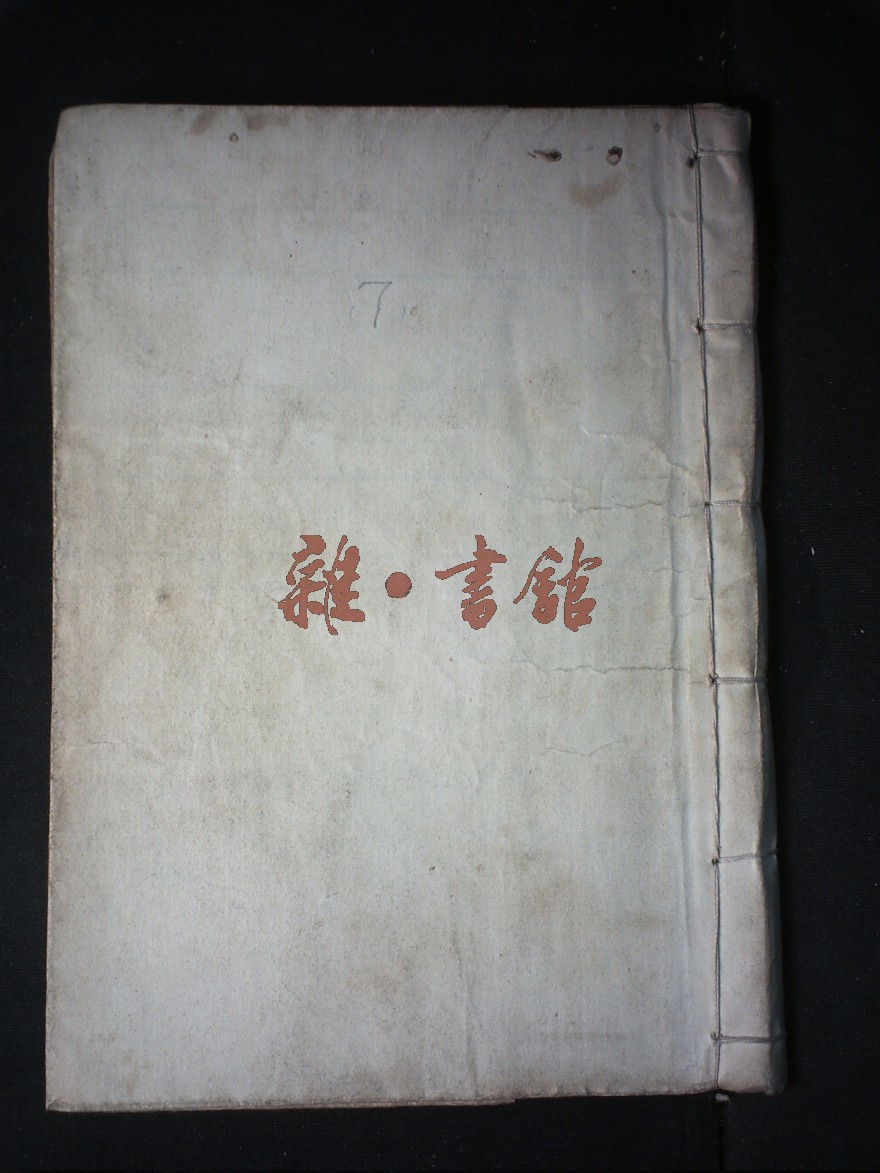 7
雜·書館